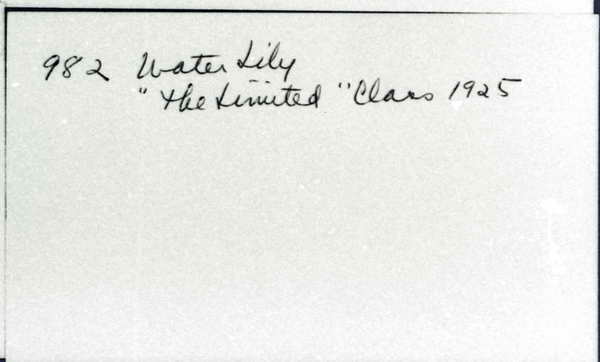 982 Water Lily
"The Limited" Class 1925